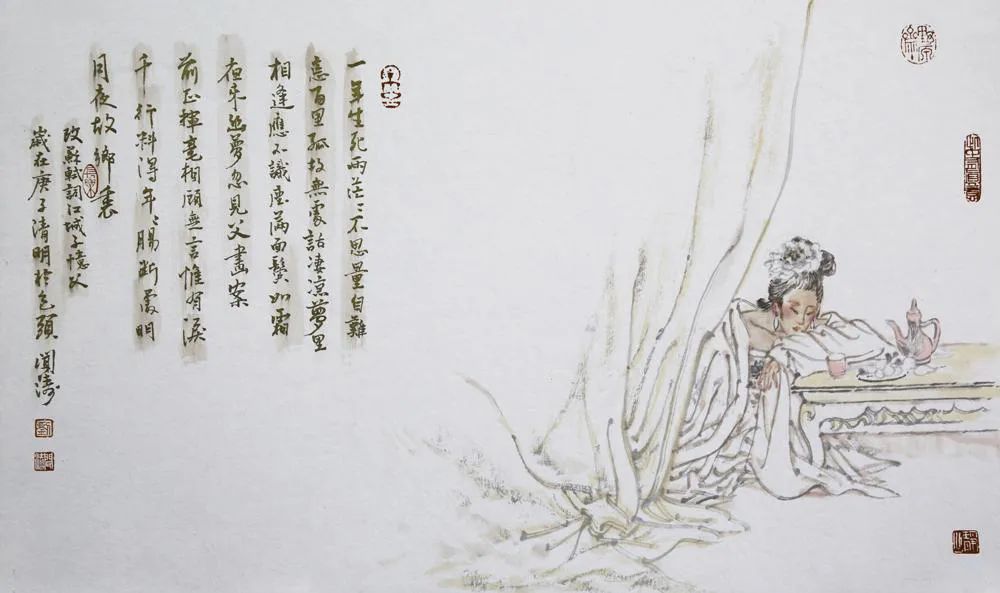 一年生死兩茫〻不思量自難
忘百里孤坟無處話凄涼夢里
相逢應不識塵滿面鬓如霜
夜来幽夢忽見父畫案
前正揮毫相顧無言惟有淚
千行料得年〻腸断處明
月夜故鄉裏
改蘇軾詞江城子憶父
歲在庚子清明於包頭